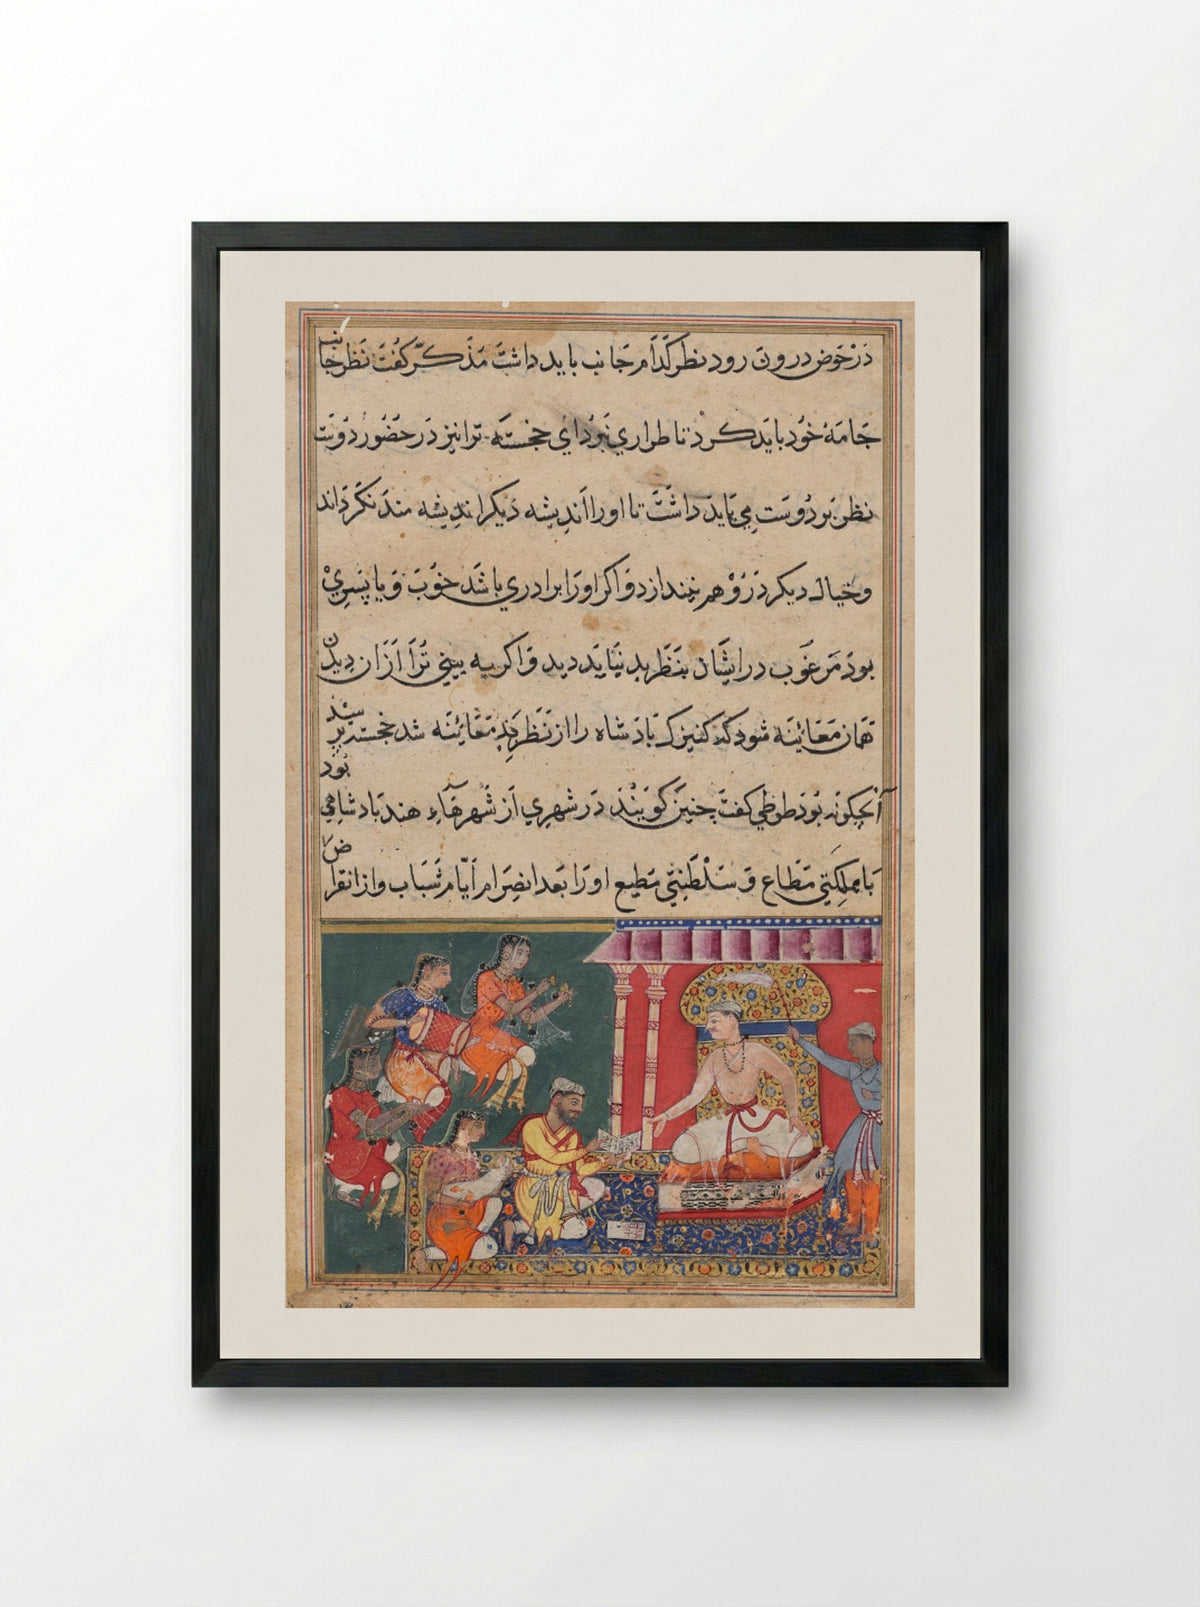 در حوض درون رود نظر کدام جانب باید داشت مذکر گفت نظر جانب
جامهٔ خود باید کرد تا طراری نبرد ای خجسته ترا نیز در حضور دوست
نظر بر دوست می باید داشت تا او را اندیشه دیگر اندیشه مند نگرداند
و خیال دیگر درو وهم نیندازد و اگر او را برادری باشد خوب و یا پسری
بود مرغوب در ایشان بنظر بد نباید دید و اگر به بینی ترا از ان دیدن
همان معائینه شود که کنیزک بادشاه را از نظر بد معائینه شد خجسته پرسید
آنچگونه بود طوطی گفت چنین گویند در شهری از شهرهاء هند بادشاهی بود
با مملکتی مطاع و سلطنتی مطیع او را بعد انصرام ایام شباب و از انقراض